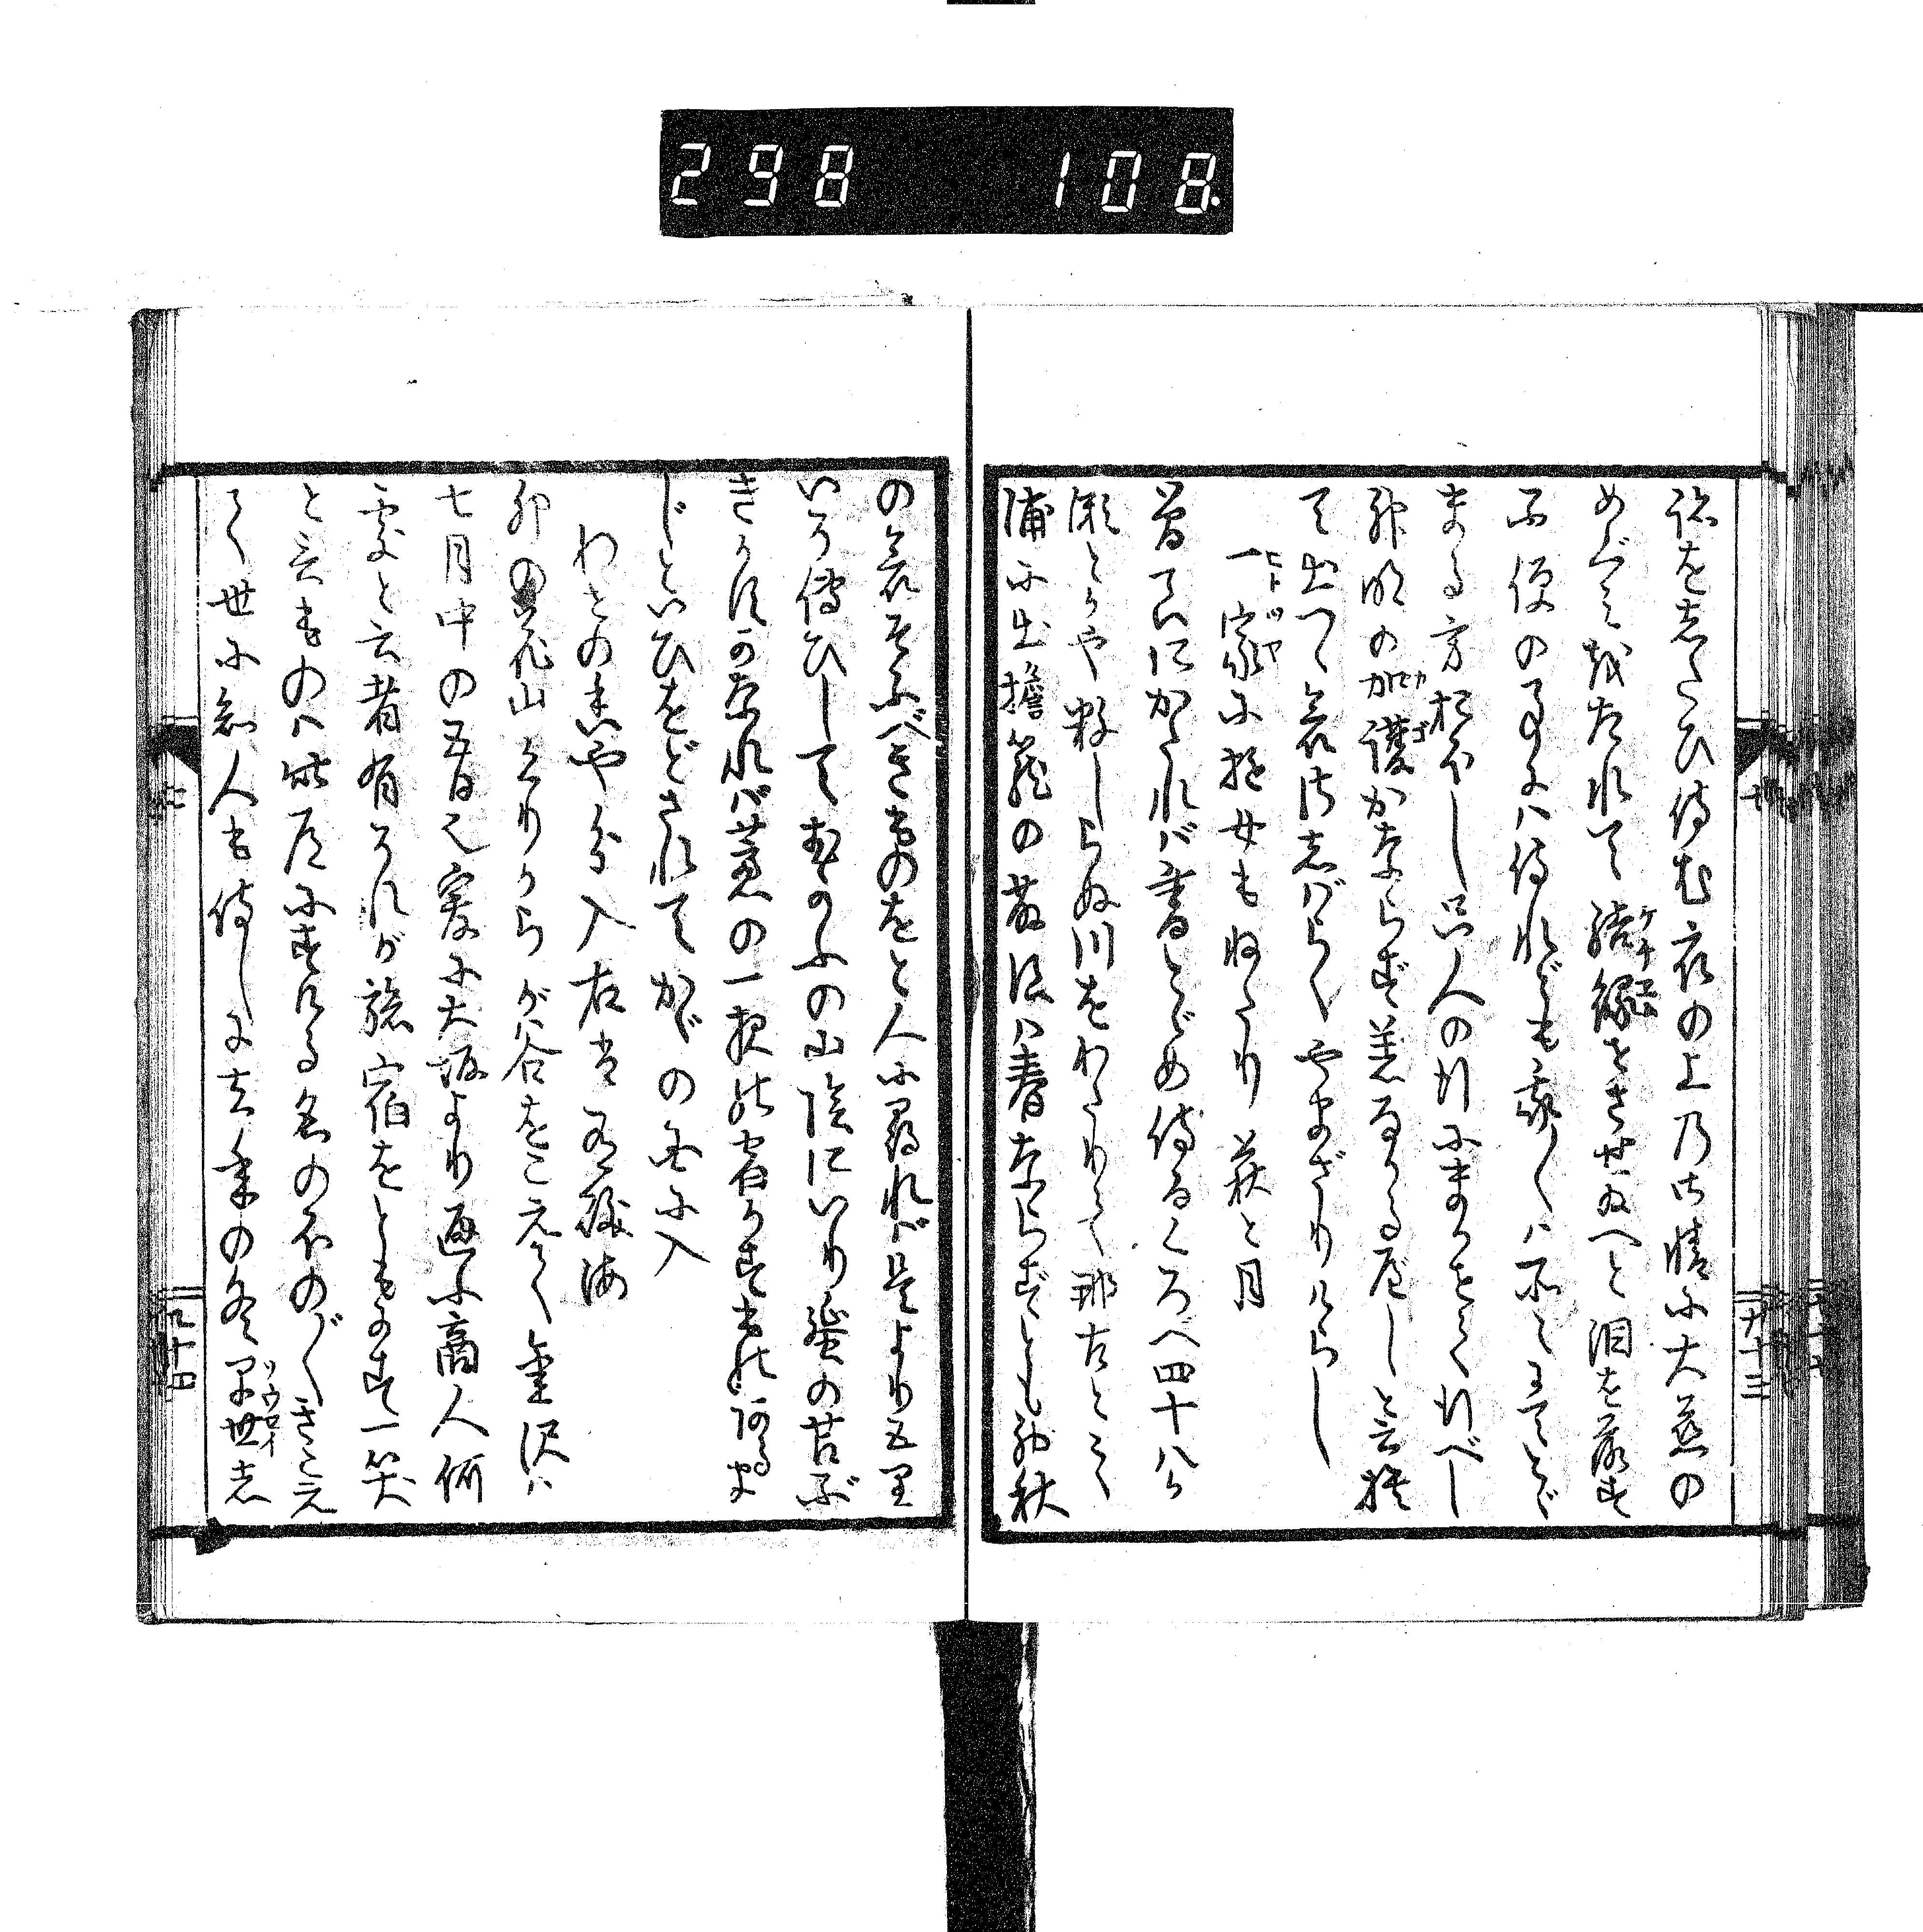 298 108
跡をしたひ侍む衣の上乃御情に大慈の
めぐみをたれて結縁せさせ給へと泪を落す
不便の事にハ侍れども我々ハ所々にてとゞ
まる方おほし只人の行にまかせて行べし
神明の加護かならず恙なかるべしと云捨
て出つゝ哀さしばらくやまざりけらし
一家に遊女もねたり萩と月
曽良にかたれバ書とゞめ侍るくろべ四十八ヶ
瀬とかや数しらぬ川をわたりて那古と云
浦に出擔籠の藤浪ハ春ならずとも初秋
の哀とふべきものをと人に尋れバ是より五里
いそ傳ひしてむかふの山陰にいり蜑の苫ぶ
きかすかなれバ蘆の一夜の宿かすものあるま
じといひをどされてかゞの国に入
わせの香や分入右は有磯海
卯の花山くりからが谷をこえて金沢ハ
七月中の五日也爰に大坂よりかよふ商人何
處と云者有それが旅宿をともにす一笑
と云ものハ此道にすける名のほのゞゝきこえ
て世に知人も侍しに去年の冬早世し